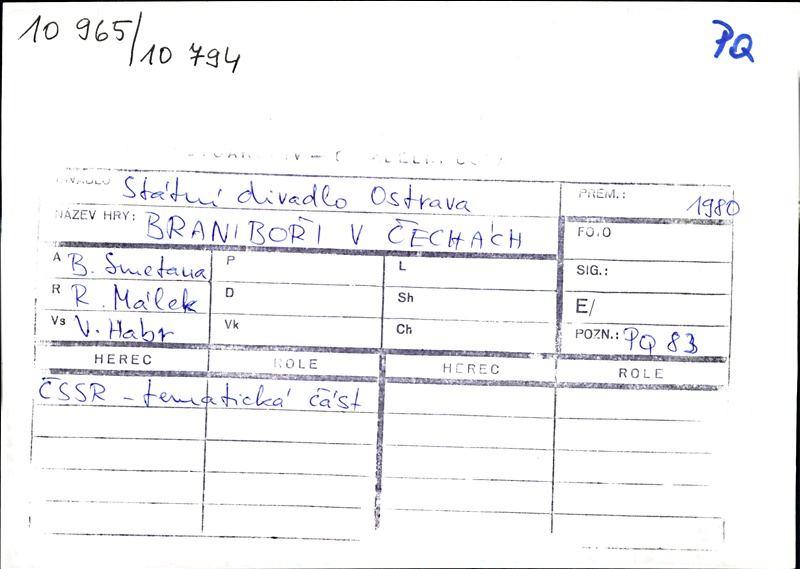 10 965/10 794
PQ
DIVADLO Státní divadlo Ostrava
PREM.: 1980
NÁZEV HRY: BRANIBOŘI V ČECHÁCH
FOTO
A B. Smetana
P
L
SIG.:
R R. Málek
D
Sh
E/
Vs V. Habr
Vk
Ch
POZN.: PQ 83
HEREC ROLE HEREC ROLE
ČSSR - tematická část